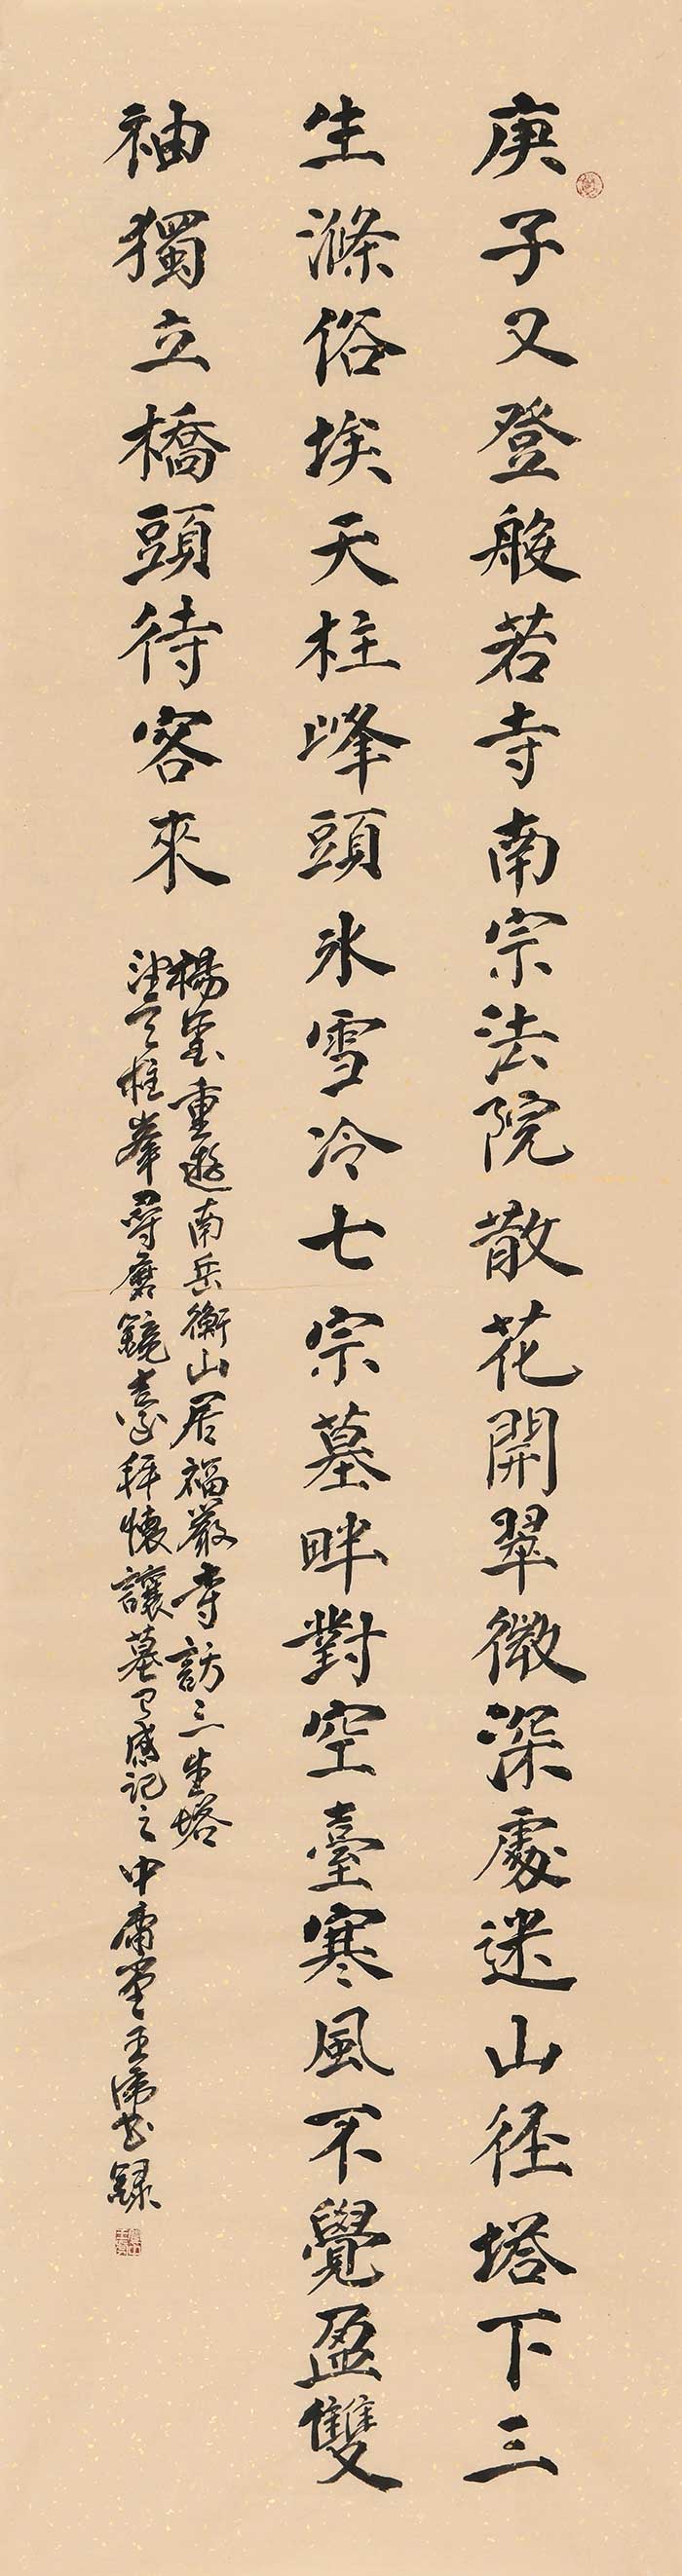 庚子又登般若寺南宗法院散花開翠微深處迷山径塔下三
生滌俗埃天柱峰頭氷雪冷七宗墓畔對空臺寒風不覺盈雙
袖獨立橋頭待客來
楊墨重遊南岳衡山居福嚴寺訪三生塔
天柱峯尋磨鏡臺拜懷讓墓有感記之中庸堂王 錄